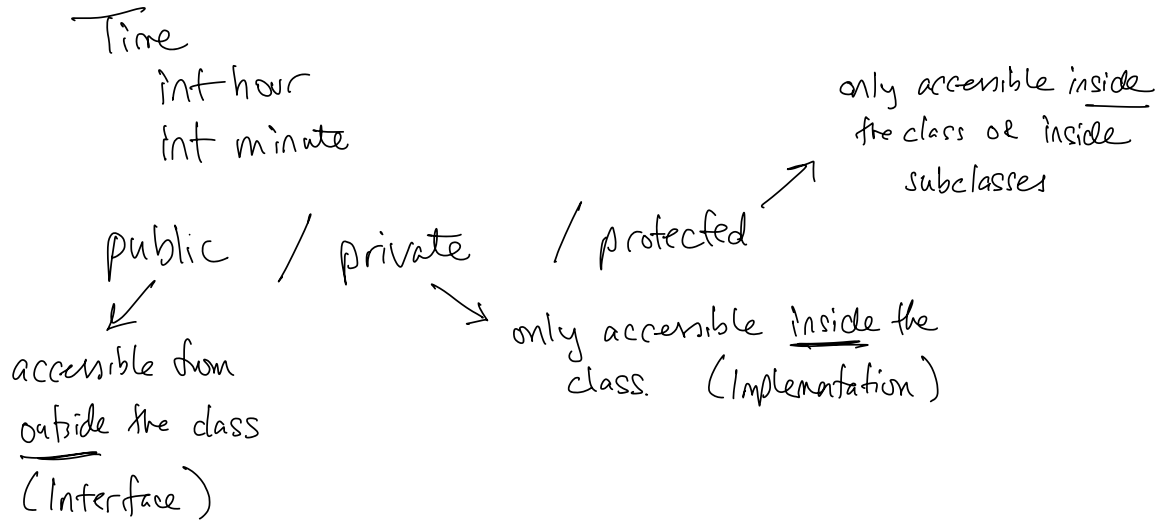 Time
int hour
int minute
only accessible inside
the class or inside
subclasses
public / private / protected
accessible from
outside the class
(Interface)
only accessible inside the
class. (Implementation)